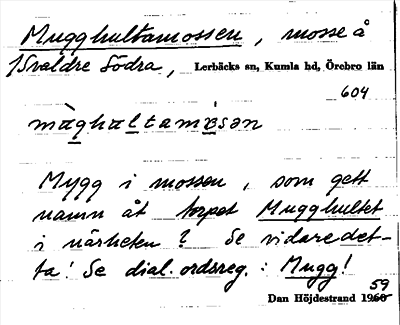 Mugghultamossen, mosse å
Svaldre Södra, Lerbäcks sn, Kumla hd, Örebro län
604
màghaltamósən
Mygg i mossen, som gett
namn åt torpet Mugghultet
i närheten? Se vidare det-
ta! Se dial. ordsreg.: Mugg!
59
Dan Höjdestrand 1960